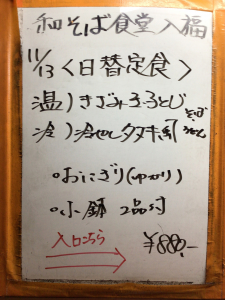 和そば食堂 入福
11/13 <日替定食>
温) きざみ玉子とじ
冷) 冷やしタヌキ風
そば
うどん
・おにぎり(ゆかり)
・小鉢 2品付
入口こちら
¥880.-